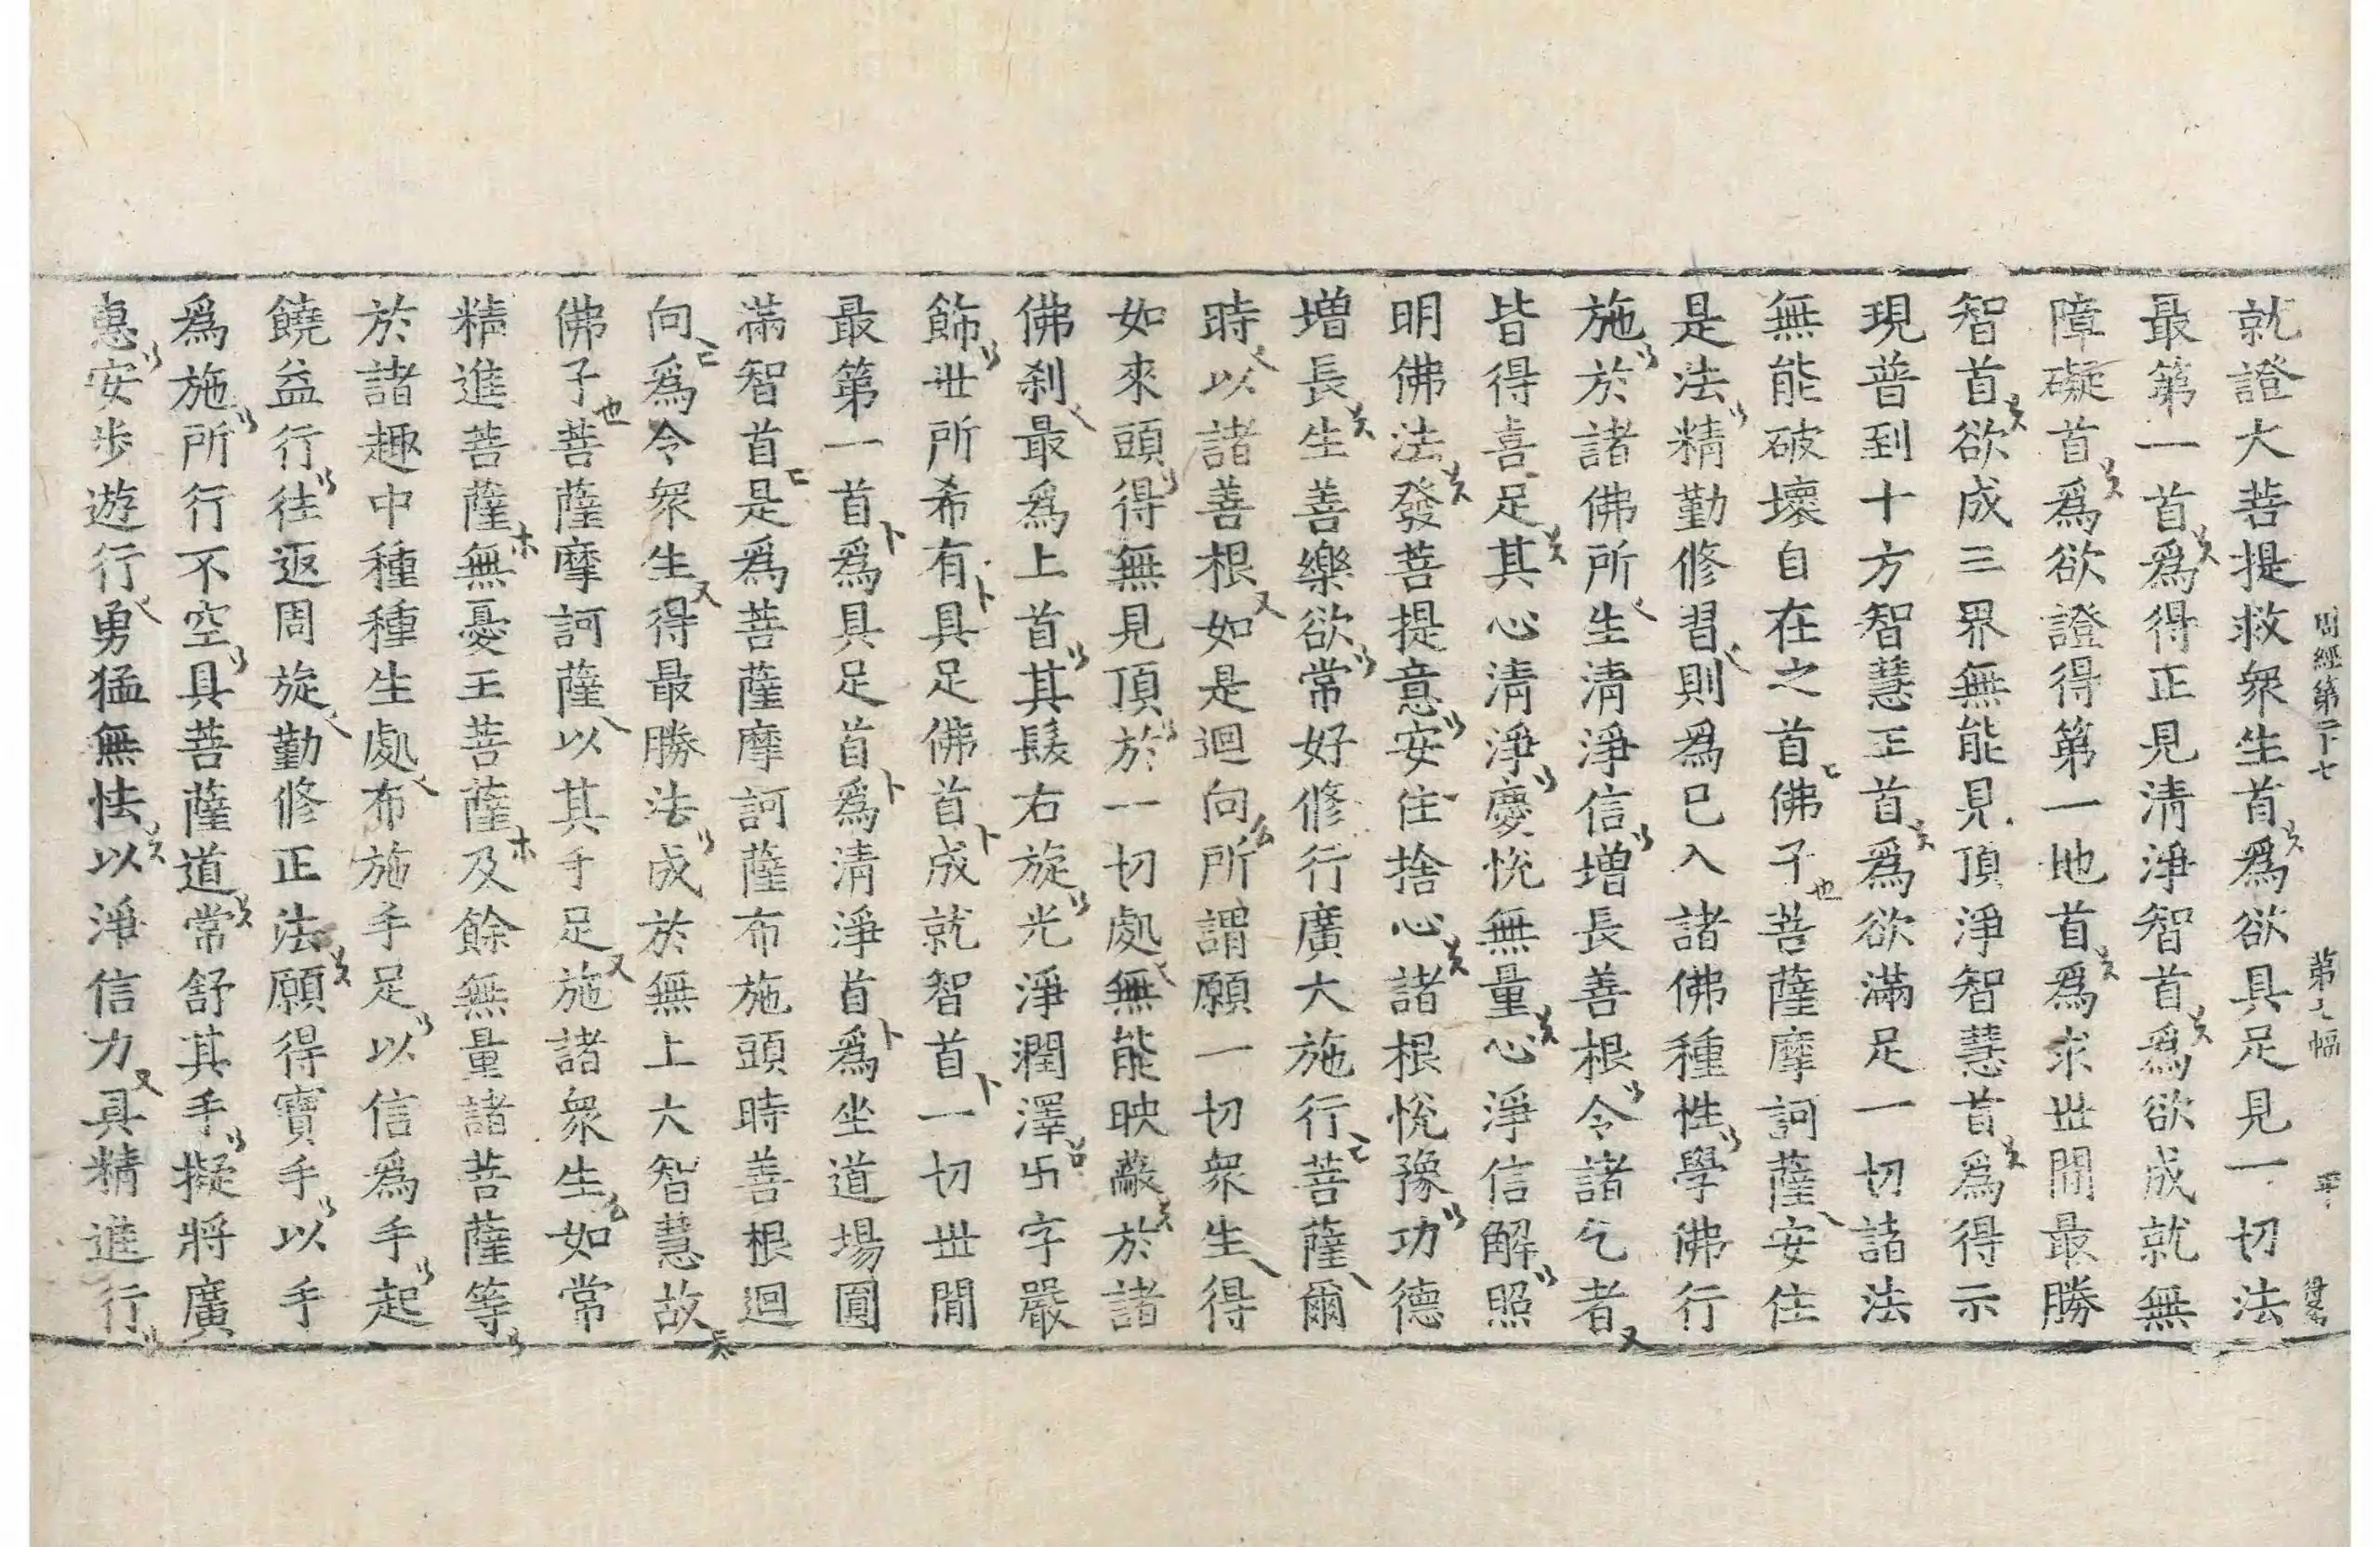 周經第二十七 第七幅
就證大菩提救衆生首爲欲具足見一切法
最第一首爲得正見清淨智首爲欲成就無
障礙首爲欲證得第一地首爲求世間最勝
智首欲成三界無能見頂淨智慧首爲得示
現普到十方智慧王首爲欲滿足一切諸法
無能破壞自在之首佛子菩薩摩訶薩安住
是法精勤修習則爲已入諸佛種性學佛行
施於諸佛所生清淨信增長善根令諸乞者
皆得喜足其心清淨慶悅無量心淨信解照
明佛法發菩提意安住捨心諸根悅豫功德
增長生善樂欲常好修行廣大施行菩薩爾
時以諸善根如是迴向所謂願一切衆生得
如來頭得無見頂於一切處無能映蔽於諸
佛刹最爲上首其髮右旋光淨潤澤卐字嚴
飾世所希有具足佛首成就智首一切世間
最第一首爲具足首爲清淨首爲坐道場圓
滿智首是爲菩薩摩訶薩布施頭時善根迴
向爲令衆生得最勝法成於無上大智慧故
佛子菩薩摩訶薩以其手足施諸衆生如常
精進菩薩無憂王菩薩及餘無量諸菩薩等
於諸趣中種種生處布施手足以信爲手起
饒益行往返周旋勤修正法願得寶手以手
爲施所行不空具菩薩道常舒其手擬將廣
惠安步遊行勇猛無怯以淨信力具精進行